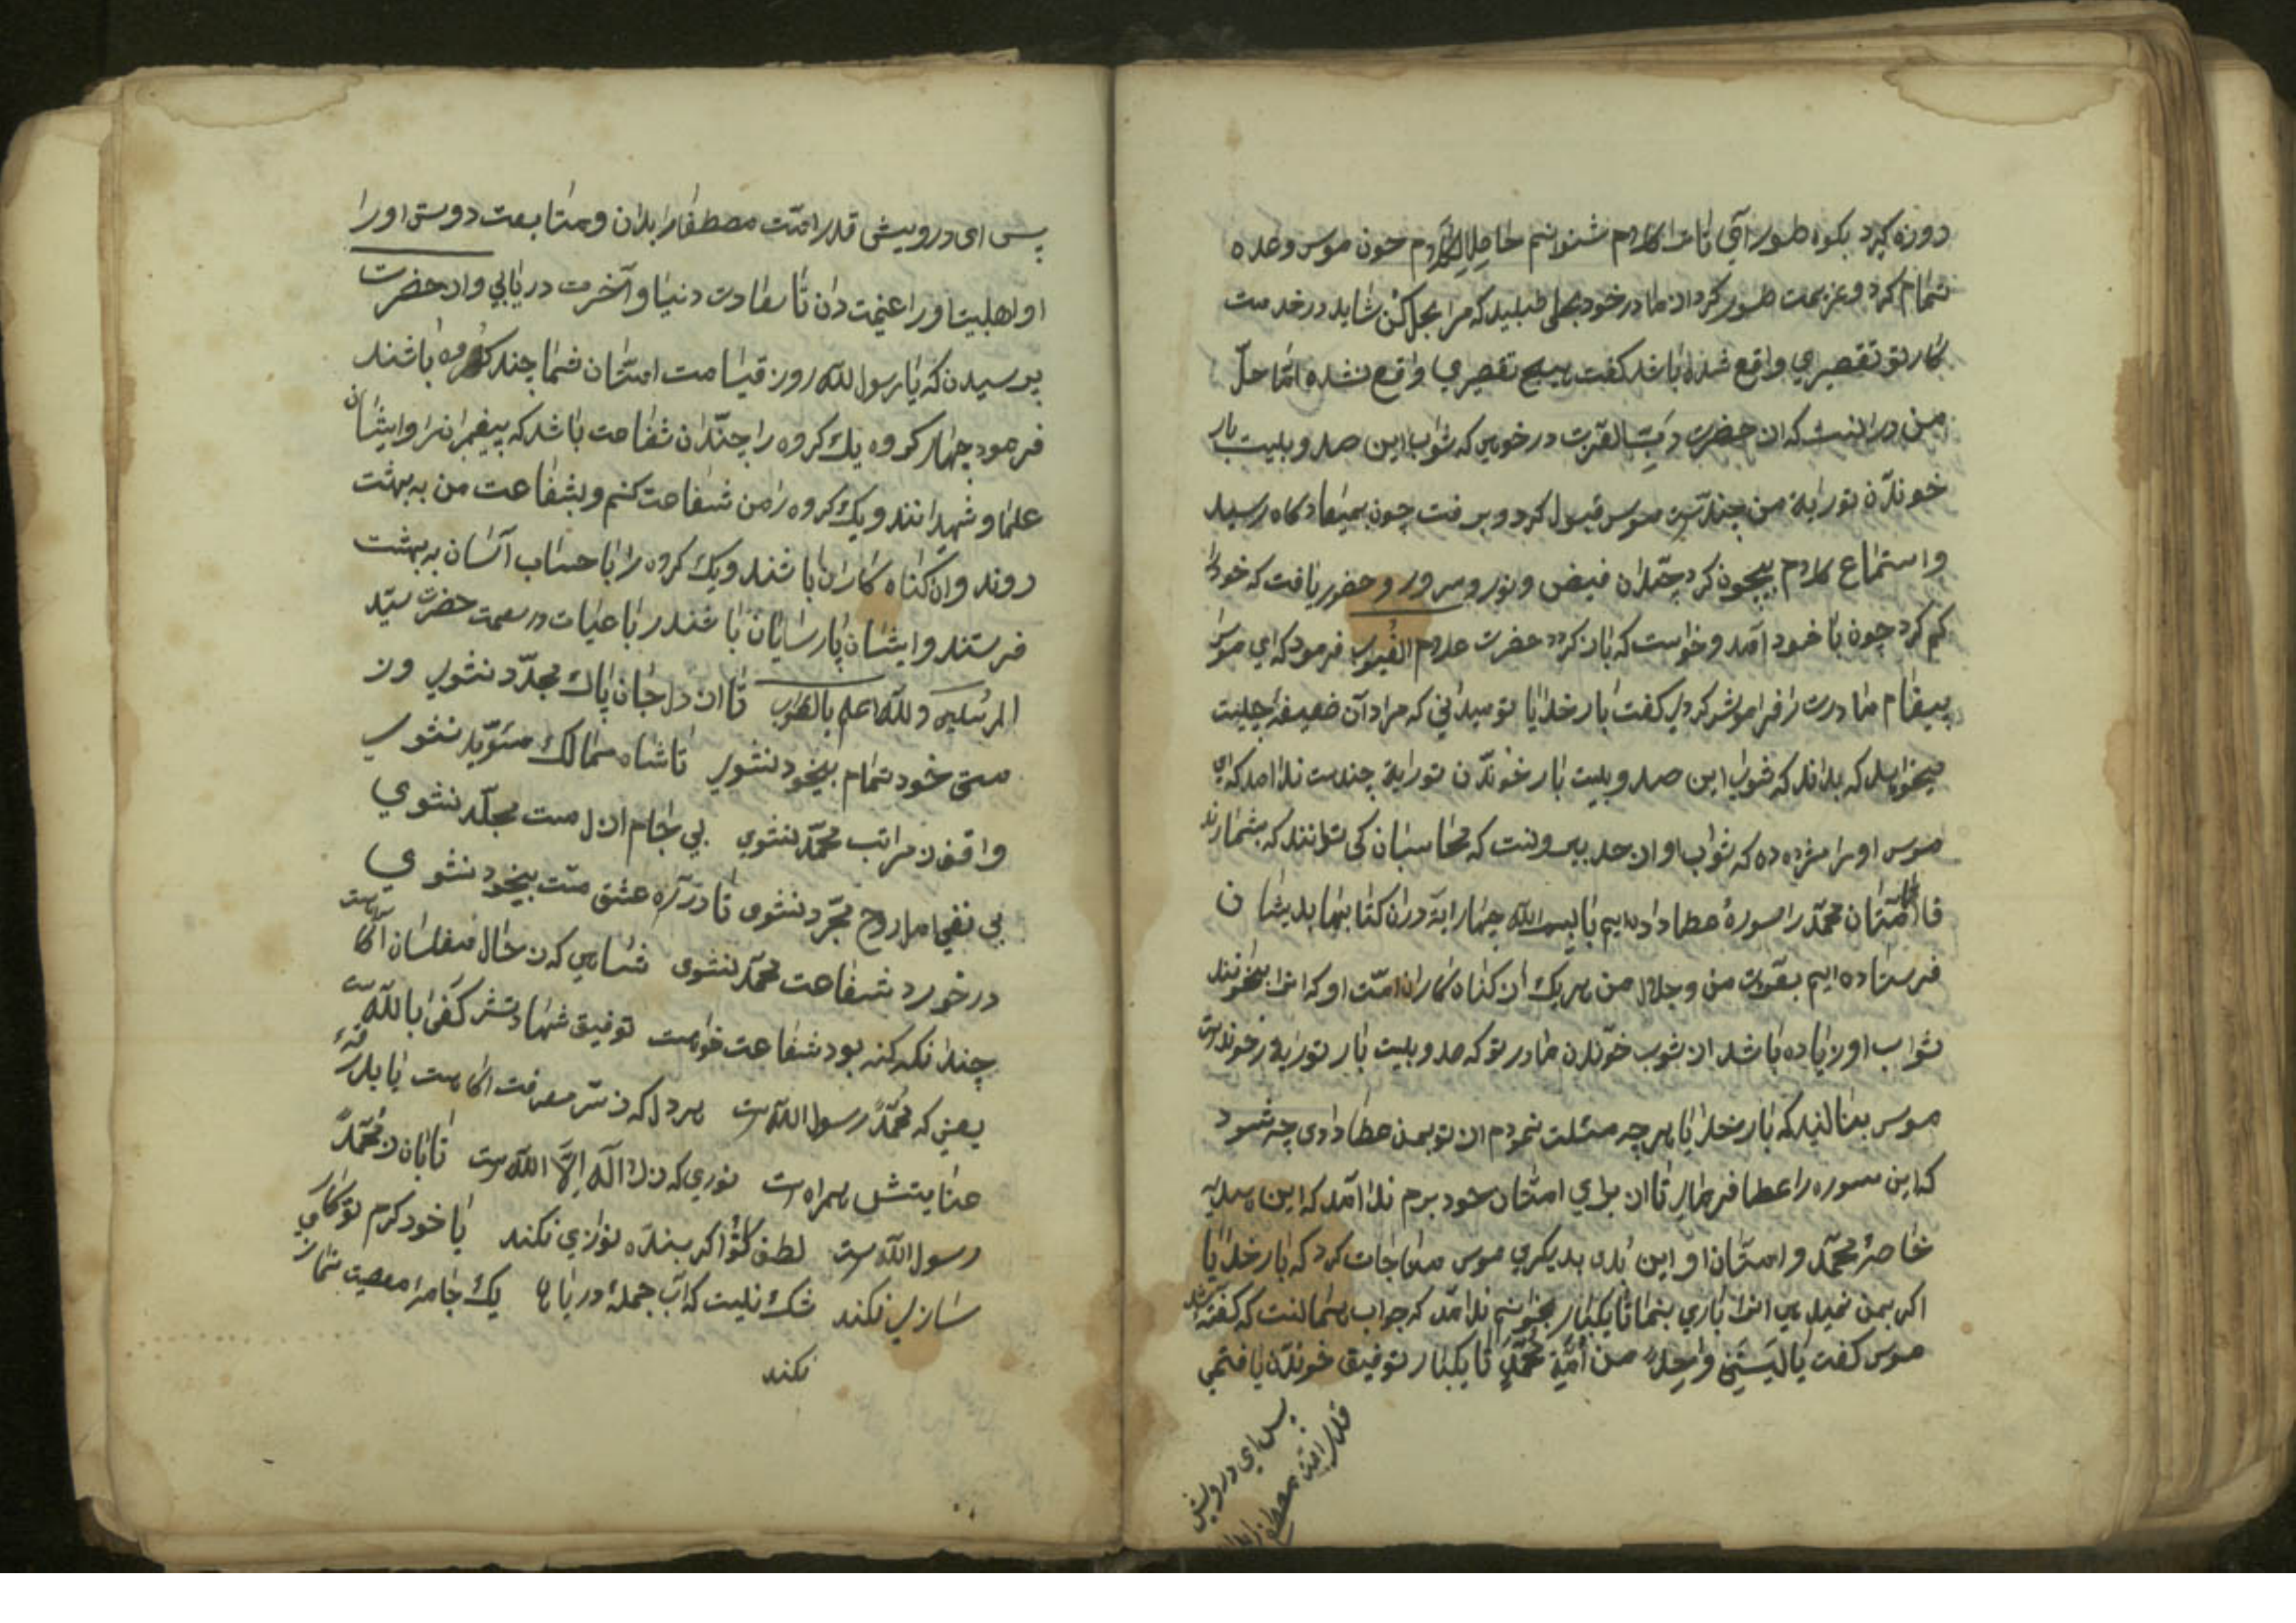 دوزه کیرد بکوه طور آی تا ترا کلام شنوانم خاصا لکلام چون موسی وعده
تمام کرد و عزیمت طور کرد از مادر خود بحلی طلبید که مرا بحل کن شاید در خدمت
کار تو تقصیری واقع شده باشد کفت هیچ تقصیری واقع نشده اما حل
من در آنست که از حضرت رب العزت در خواهی که ثواب این صد و بیست بار
خوندن تورایة من چندست موسی قبول کرد و برفت چون بمیعادکاه رسید
و استماع کلام بیچون کرد چندان فیض و نور و سرور و حضور یافت که خود را
کم کرد چون با خود آمد و خواست که باز کردد حضرت علام الغیوب فرمود که ای موسی
پیغام مادرت را فراموش کردی کفت بار خدایا تو میدانی که مراد آن ضعیفه چیست
میخواهد که بداند که ثواب این صد و بیست بار خوندن تورایة چندست ندا آمد که ای
موسی او را مژده ده که ثواب او از حد بیرونست که محاسبان کی توانند که بشمارند
فاما امتان محمد را سورۀ عطا داده ایم با بسم الله چهار ایة در آن کتابها بدیشان
فرستاده ایم بعزت من و جلال من هر یک از کناه کاران امت او که انرا بخوانند
ثواب او زیاده باشد از ثوب خوندن مادر تو که صد و بیست بار تورایة خوندست
موسی بنالید که بار خدایا هر چه مسئلت نمودم از تو بمن عطا دادی چه شود
که این سوره را عطا فرمای تا از برای امتان خود برم ندا آمد که این هدیه
خاصۀ محمد و امتان او این ندهم بدیکری موسی مناجات کرد که بار خدایا
اکر بمن نمیدهی انرا باری بنما تا یکبار بخوانم ندا آمد که جواب همانست که کفته شد
موسی کفت یا لیتنی واحد من امة محمد تا یکبار توفیق خوندن یافتمی
پس ای درویش
قدر امت مصطفا را بدان
پس ای درویش قدر امت مصطفا را بدان و متابعت دوستی او را
او اهلبیت او را غنیمت دان تا سعادت دنیا و آخرت دریابی و از حضرت
پرسیدن که یا رسول لله روز قیامت امتان شما چند کروه باشند
فرمود چهار کروه یک کروه را چندان شفاعت باشد که پیغمبران را و ایشان
علما و شهدا انند و یک کروه را من شفاعت کنم و بشفاعت من به بهشت
روند و ان کناه کاران باشند و یک کروه را با حساب آسان به بهشت
فرستند و ایشان پارسایان باشند رباعیات در نعت حضرت سید
المرسلین ولله اعلم بالصواب تا از دل جان پاک مجرد نشوی وز
مستی خود تمام بیخود نشوی تا شاه ممالک مئوید نشوی
واقف ز مراتب محمد نشوی بی جام ازل مست مجلد نشوی
بی نفی امل روح مجرد نشوی تا در ره عشق مست بیخود نشوی
در خورد شفاعت محمد نشوی شاهی که ز حال مفلسان آکاهست
چندانکه کنه بود شفاعت خواهست توفیق شهادتش کفی بالله است
یعنی که محمد رسول الله است هر دل که ز سر معرفت آکاهست یا بدرقۀ
عنایتش همراه است نوری که ز لا اله الا الله است تابان ز محمد
رسول الله است لطف تو اکر بنده نوازی نکند یا خود کرم تو کار
سازی نکند شک نیست که آب جملۀ دریاها یک جامۀ معصیت نمازی
نکند